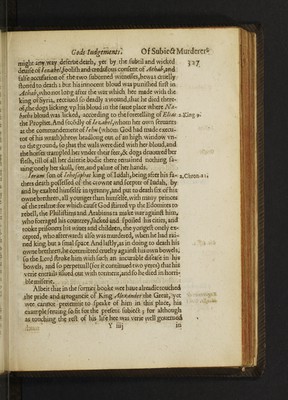 Gods Iudgements. Of Subiect Murderers
327
might any way deserue death, yet by the subtil and wicked
deuise of Iesabel, foolish and credulous consent of Achab, and
false accusation of the two suborned witnesses, he was cruelly
stoned to death: but his innocent bloud was punished first in
Achab, who not long after the war which hee made with the
king of Syria, receiued so deadly a wound, that he died there-
of, the dogs licking vp his bloud in the same place where Na-
boths bloud was licked, according to the foretelling of Elias
2.King 9.
the Prophet. And secōdly of Iesabel, whom her own seruants
at the commandement of Iehu (whom God had made execu-
tor of his wrath) threw headlong out of an high window vn-
to the ground, so that the wals were died with her bloud, and
the horses trampled her vnder their feet, & dogs deuoured her
flesh, till of all her daintie bodie there remained nothing sa-
uing onely her skull, feet, and palmes of her hands.
Ioram son of Iehosaphat king of Iudah, being after his fa-
2.Chron.21.
thers death possessed of the crowne and scepter of Iudah, by
and by exalted himselfe in tyranny, and put to death six of his
owne brethren, all younger than himselfe, with many princes
of the realme: for which cause God stirred vp the Edomites to
rebell, the Philistims and Arabians to make war against him,
who forraged his countrey, sacked and spoiled his cities, and
tooke prisoners his wiues and children, the yongest onely ex-
cepted, who afterwards also was murdered, when he had rai-
ned king but a smal space. And lastly, as in doing to death his
owne brethren, he committed cruelty against his own bowels;
so the Lord stroke him with such an incurable disease in his
bowels, and so perpetuall (for it continued two yeres) that his
verie entrails issued out with torment, and so he died in horri-
ble miserie.
Albeit that in the former booke wee haue alreadie touched
the pride and arrogancie of King Alexander the Great, yet
wee cannot pretermit to speake of him in this place, his
example seruing so fit for the present subiect; for although
as touching the rest of his life hee was verie well gouerned
Y iiij in